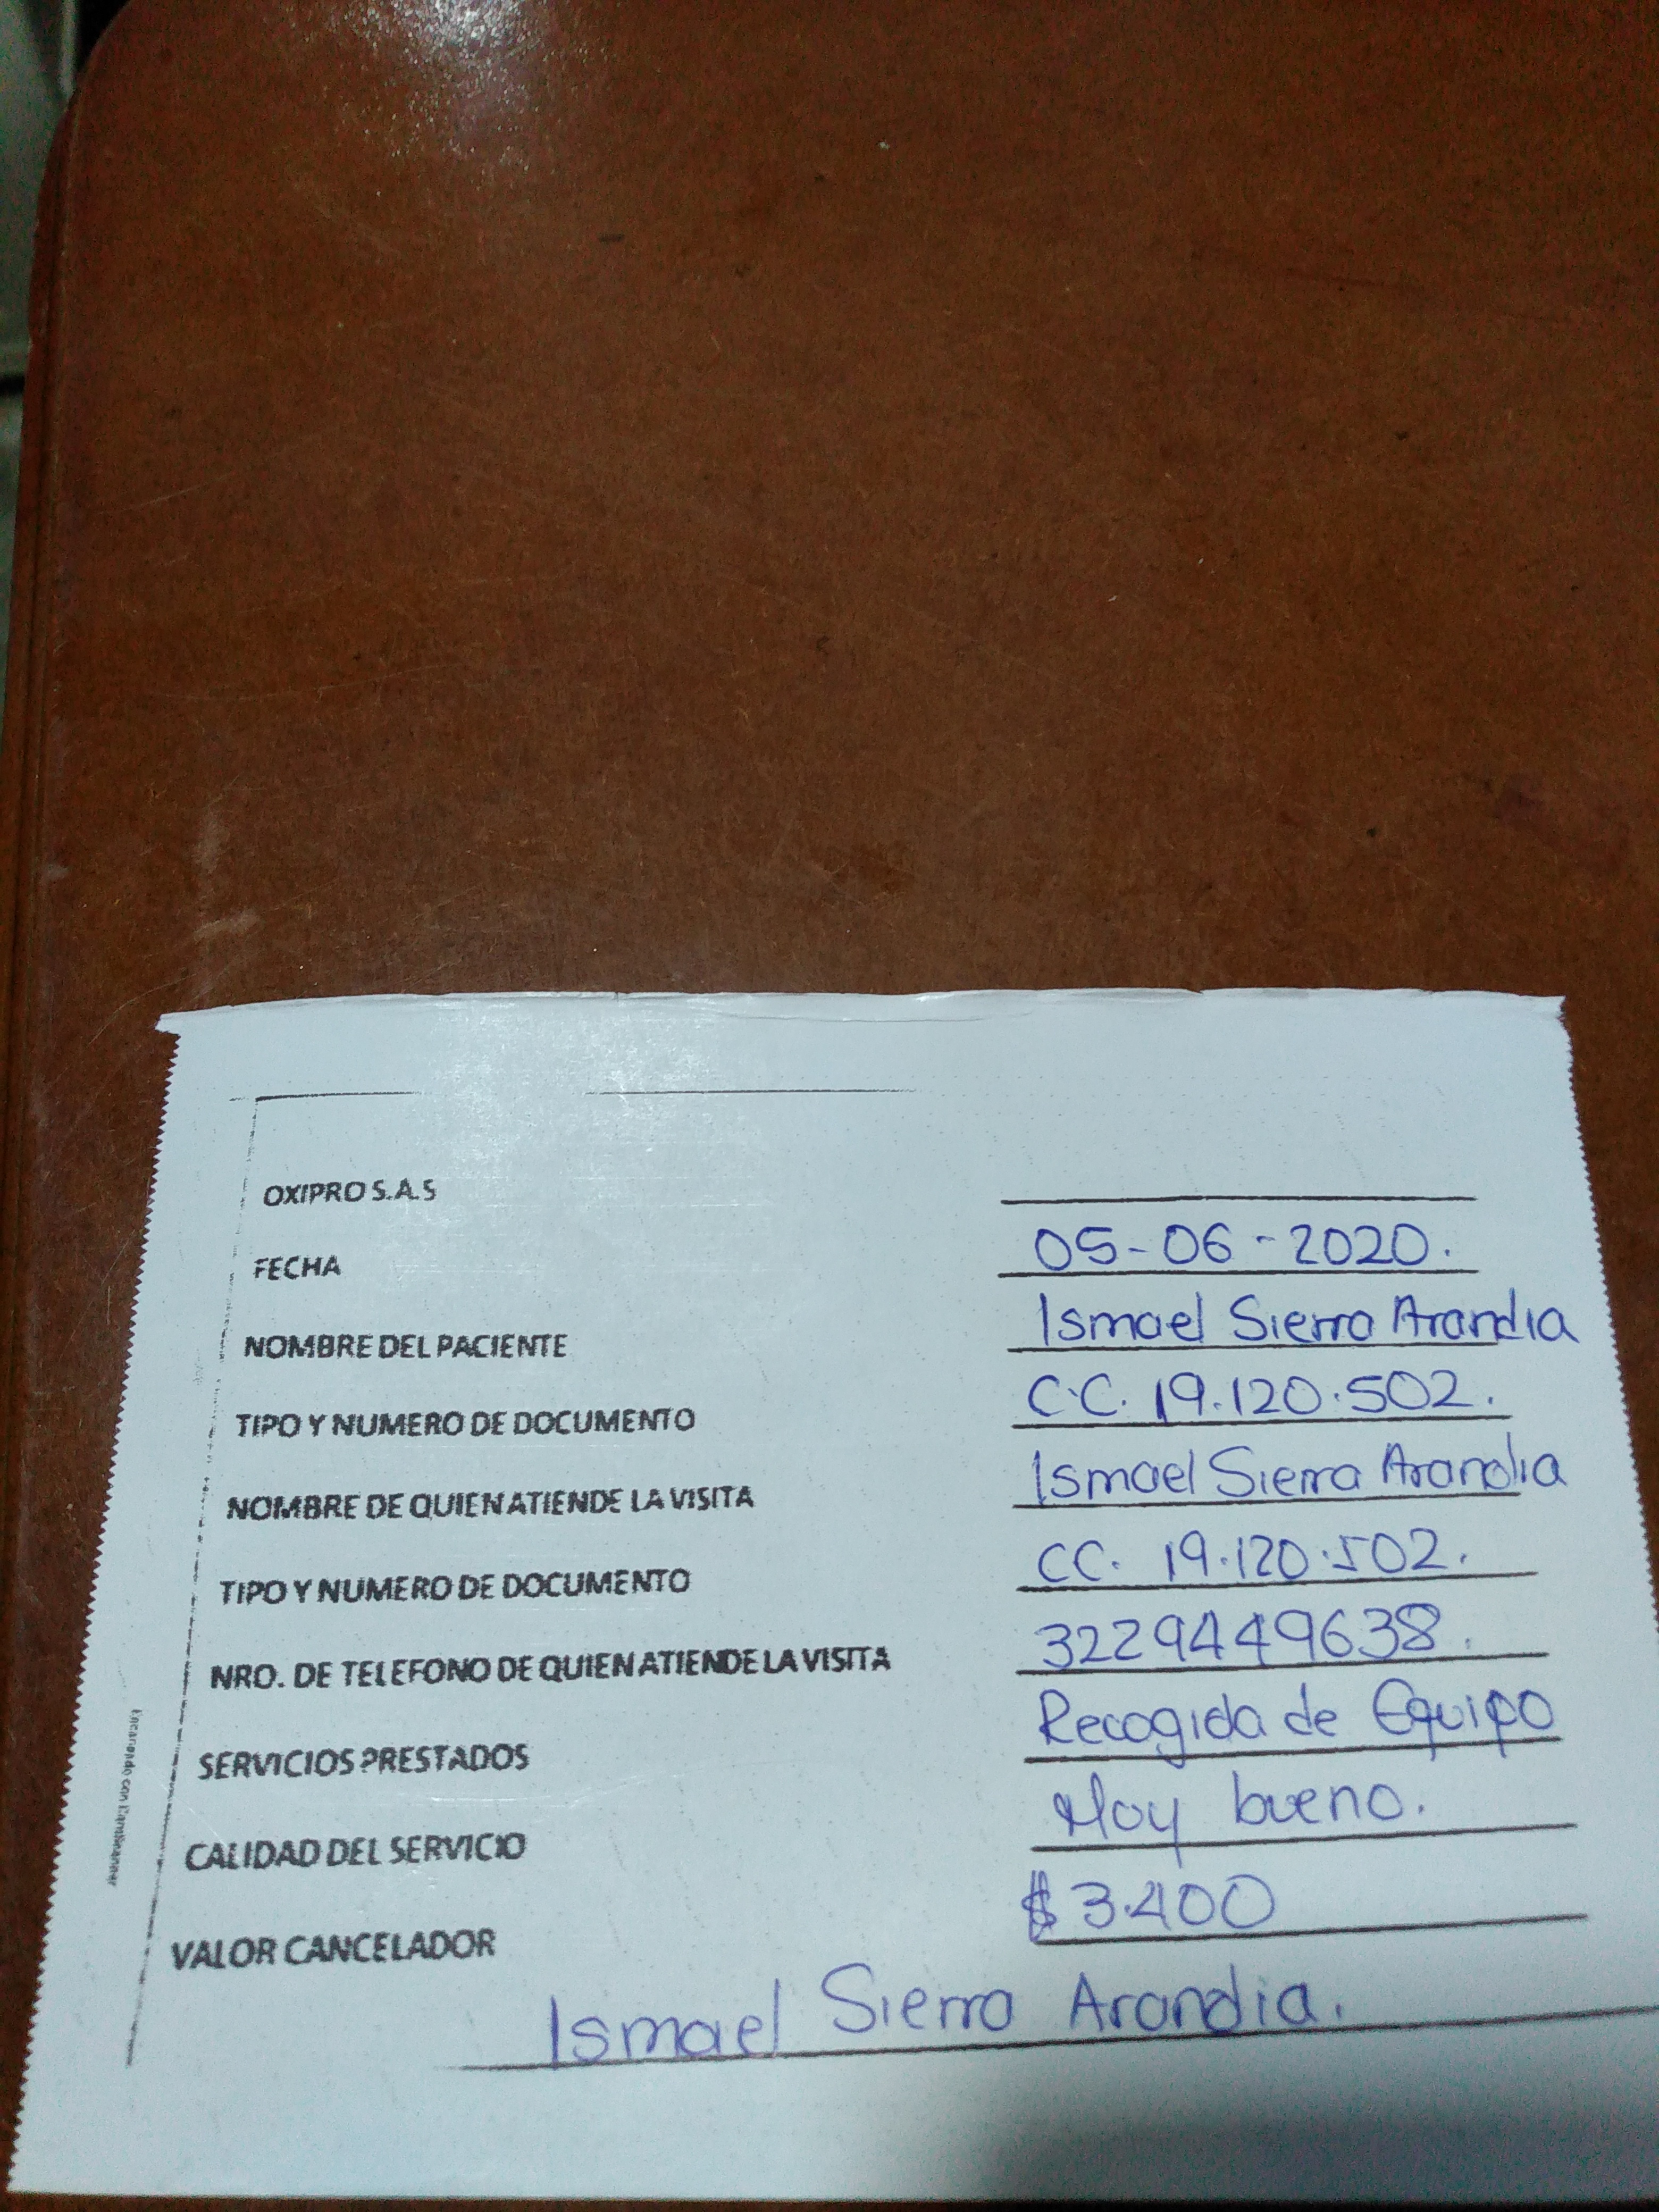 OXIPRO S.A.S
FECHA 05-06-2020.
NOMBRE DEL PACIENTE Ismael Sierra Arandia
TIPO Y NUMERO DE DOCUMENTO C.C. 19.120.502.
NOMBRE DE QUIEN ATIENDE LA VISITA Ismael Sierra Arandia
TIPO Y NUMERO DE DOCUMENTO CC. 19.120.502.
NRO. DE TELEFONO DE QUIEN ATIENDE LA VISITA 3229449638.
SERVICIOS PRESTADOS Recogida de Equipo
CALIDAD DEL SERVICIO Moy bueno.
VALOR CANCELADOR $3.400
Ismael Sierra Arandia.
Escaneado con CamScanner